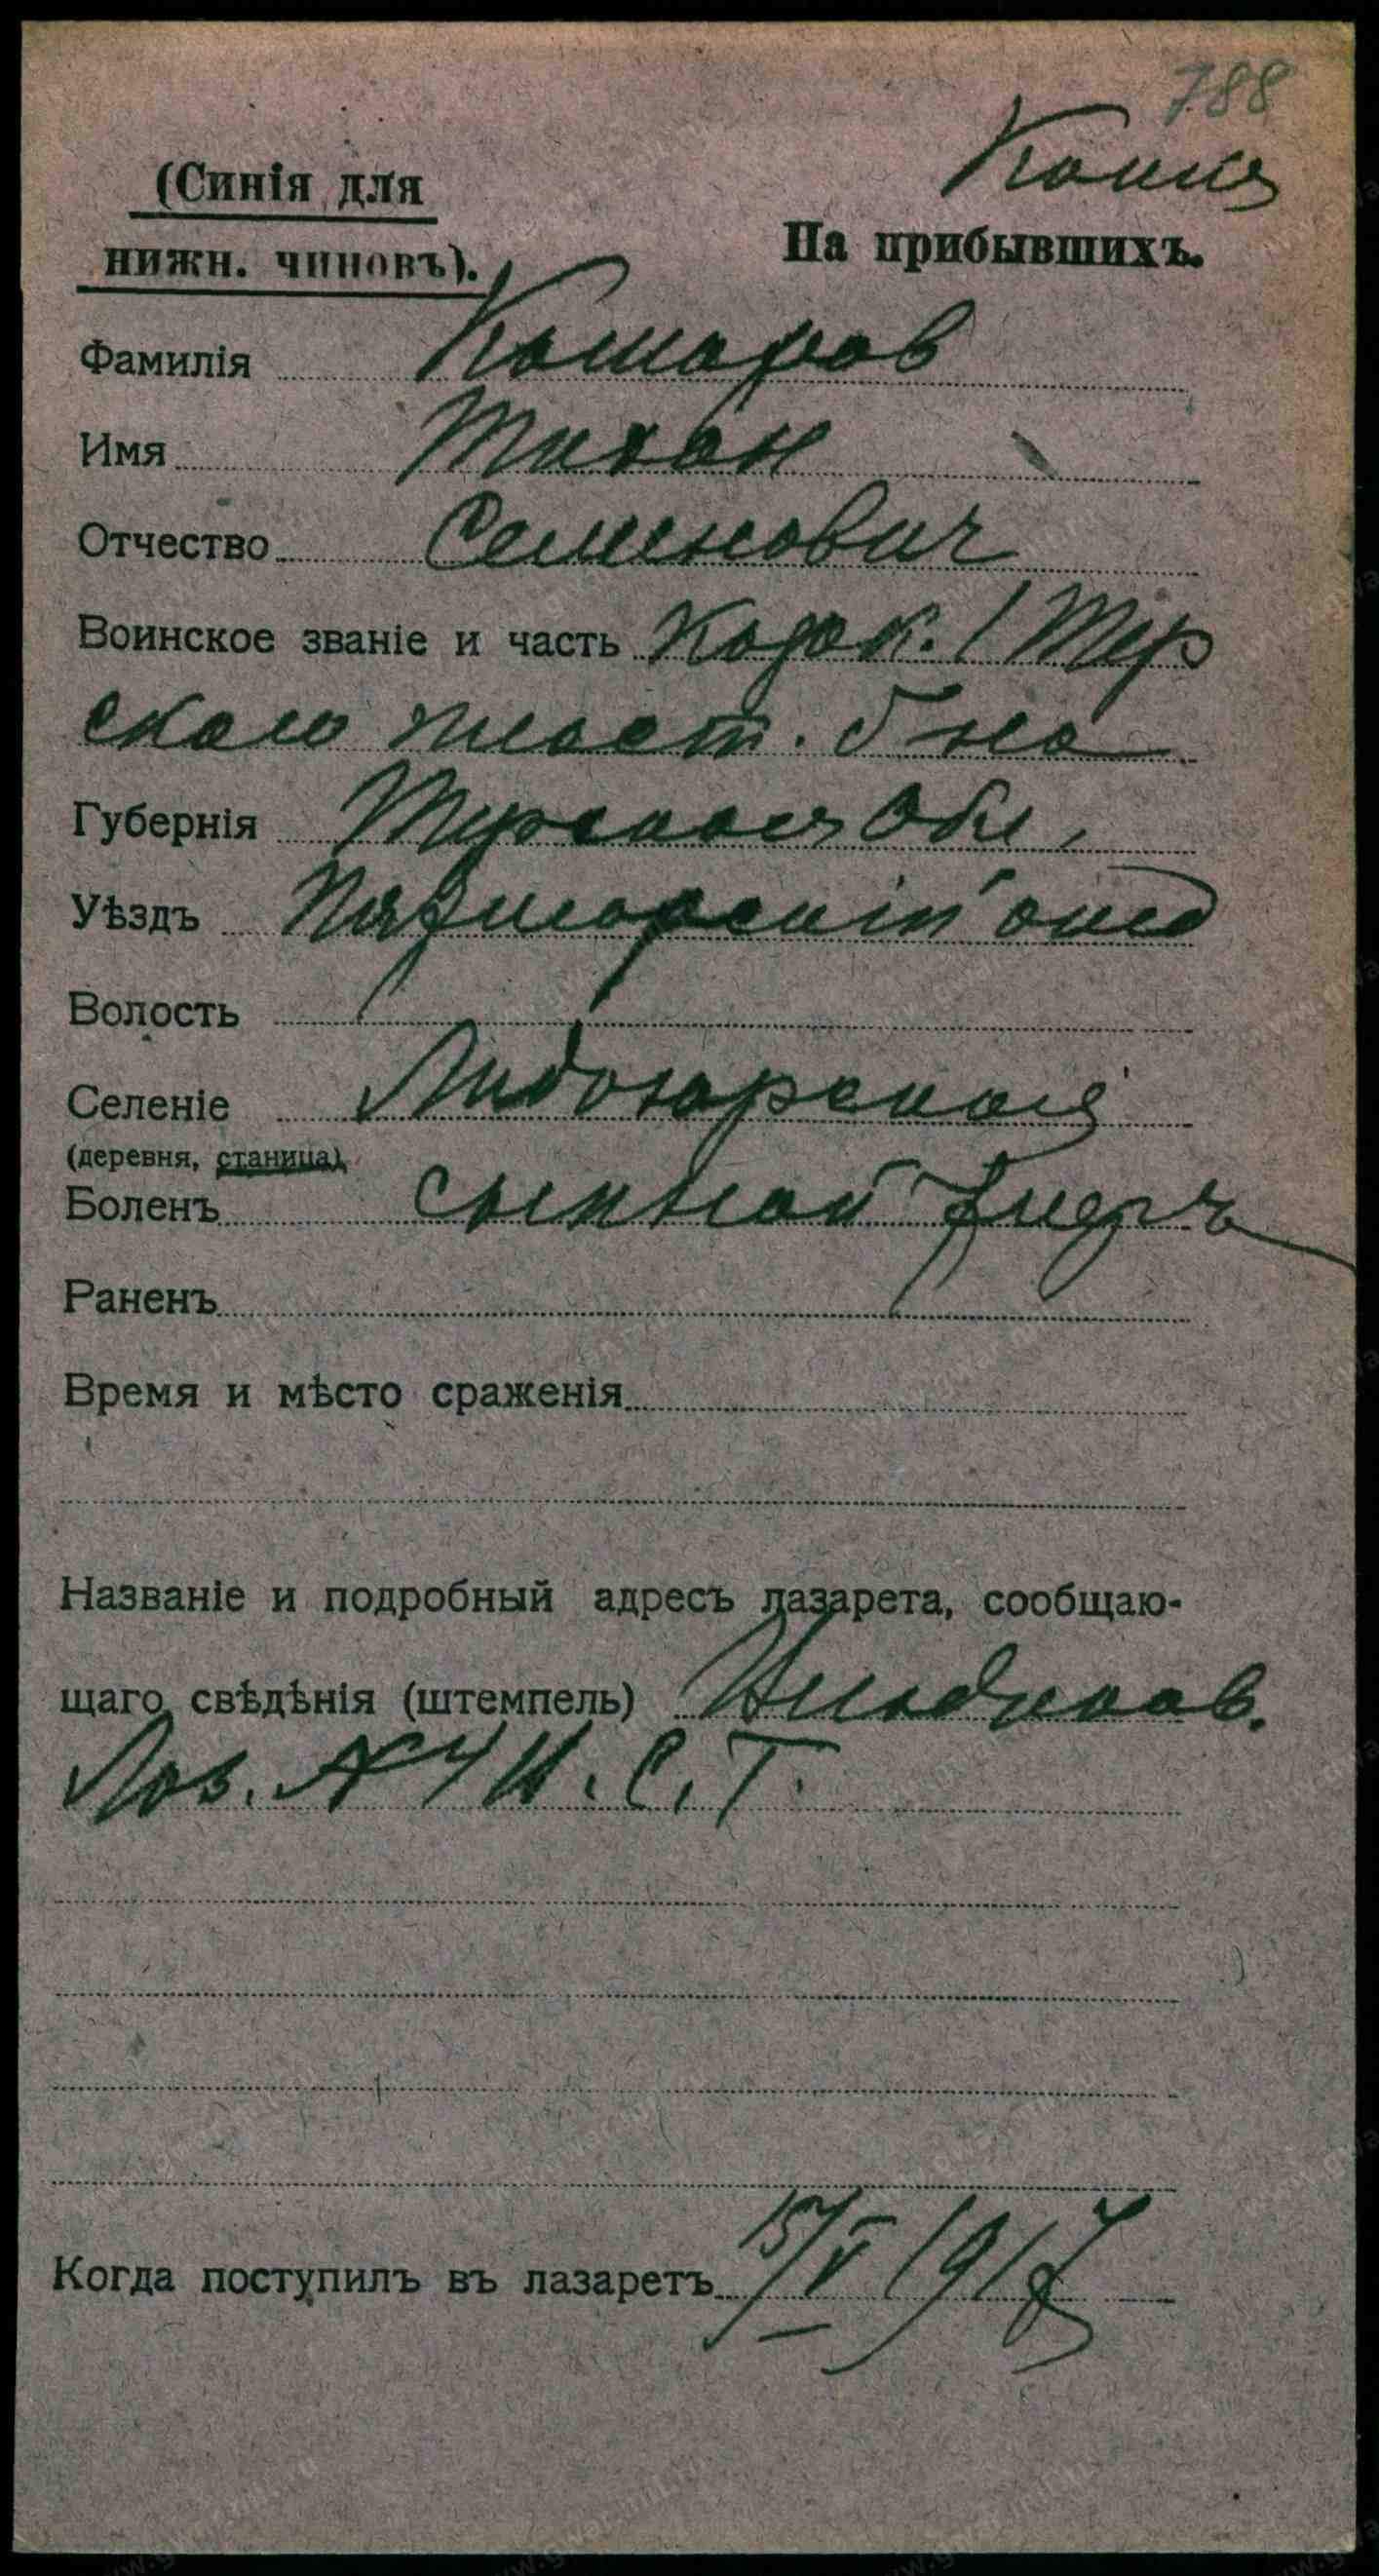 788
Копия
(Синія для
нижн. чиновъ).
На прибывшихъ.
Фамилія Комаров
Имя Тихон
Отчество Семенович
Воинское званіе и часть Козак. 1 Тер
ского пласт. б-на
Губернія Терская Обл.
Уѣздъ
Волость
Селеніе
(деревня, станица)
Боленъ сыпной
Раненъ
Время и мѣсто сраженія
Названіе и подробный адресъ лазарета, сообщаю-
щаго свѣдѣнія (штемпель)
Лаз. № 4 И. С. Т.
Когда поступилъ въ лазаретъ 15/V 1917